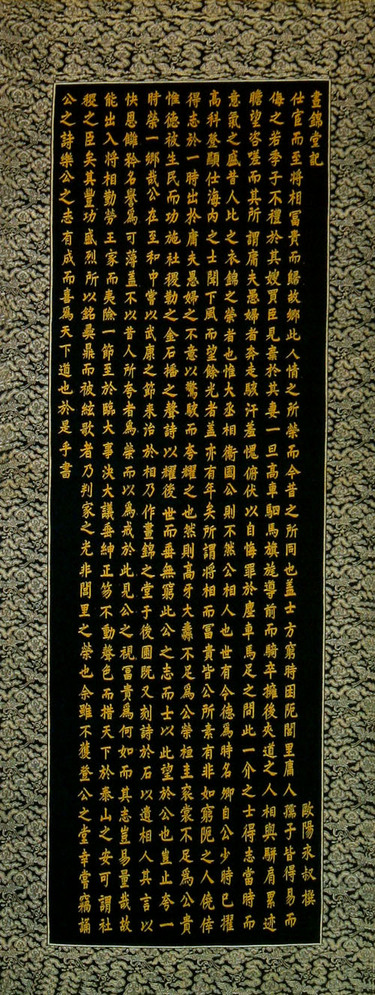 晝錦堂記
歐陽永叔 撰
仕官而至將相冨貴而歸故鄉此人情之所榮而今昔之所同也蓋士方窮時困阨閭里庸人孺子皆得易而
侮之若季子不禮於其嫂買臣見棄於其妻一旦高車駟馬旗旄導前而騎卒擁後夾道之人相與駢肩累迹
瞻望咨嗟而其所謂庸夫愚婦者奔走駭汗羞愧俯伏以自悔罪於塵車馬足之間此一介之士得志當時而
意氣之盛昔人比之衣錦之榮者也惟大丞相衛國公則不然公相人也世有令德為時名卿自公少時已擢
高科登顯仕海內之士聞下風而望餘光者蓋亦有年矣所謂將相而冨貴皆公所素有非如窮阨之人僥倖
得志於一時出於庸夫愚婦之不意以驚駭而夸耀之也然則高牙大纛不足為公榮桓圭袞裳不足為公貴
惟德被生民而功施社稷勒之金石播之聲詩以耀後世而垂無窮此公之志而士以此望於公也豈止夸一
時榮一鄉哉公在至和中嘗以武康之節來治於相乃作晝錦之堂于後圃既又刻詩於石以遺相人其言以
快恩讎矜名譽為可薄蓋不以昔人所夸者為榮而以為戒於此見公之視冨貴為何如而其志豈易量哉故
能出入將相勤勞王家而夷險一節至於臨大事決大議垂紳正笏不動聲色而措天下於泰山之安可謂社
稷之臣矣其豐功盛烈所以銘彝鼎而被絃歌者乃邦家之光非閭里之榮也余雖不獲登公之堂幸嘗竊誦
公之詩樂公之志有成而喜為天下道也於是乎書